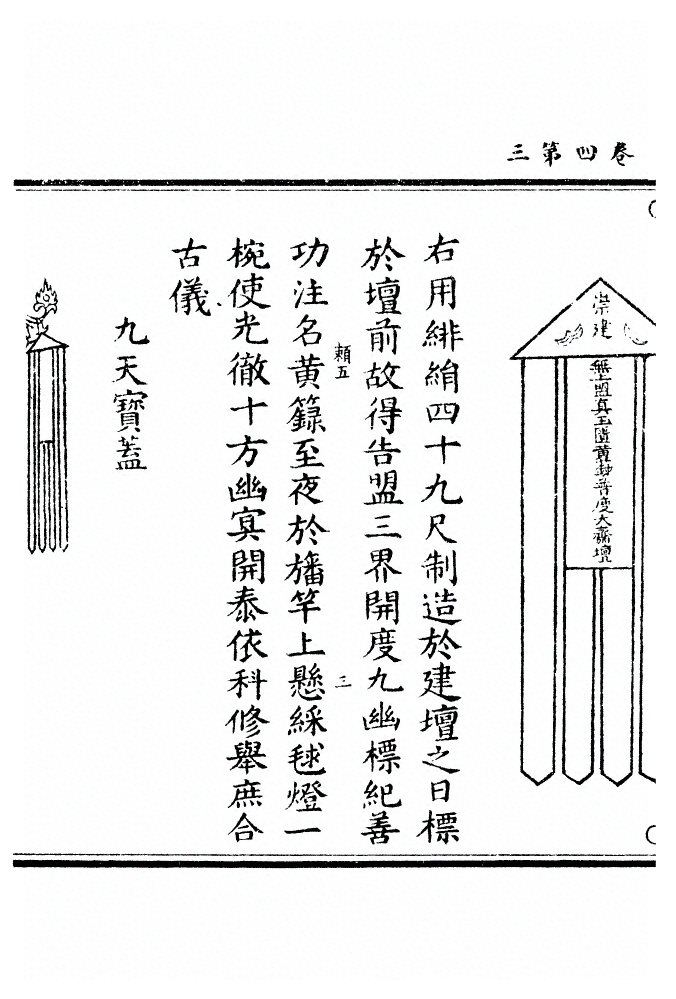 三第四卷
崇建
無上盟真玉匱黃籙普度大齋壇
右用緋絹四十九尺制造於建壇之日標
於壇前故得告盟三界開度九幽標紀善
頼五
三
功注名黄籙至夜於旛竿上懸綵毬燈一
椀使光徹十方幽冥開泰依科修舉庶合
古儀
九天寶蓋